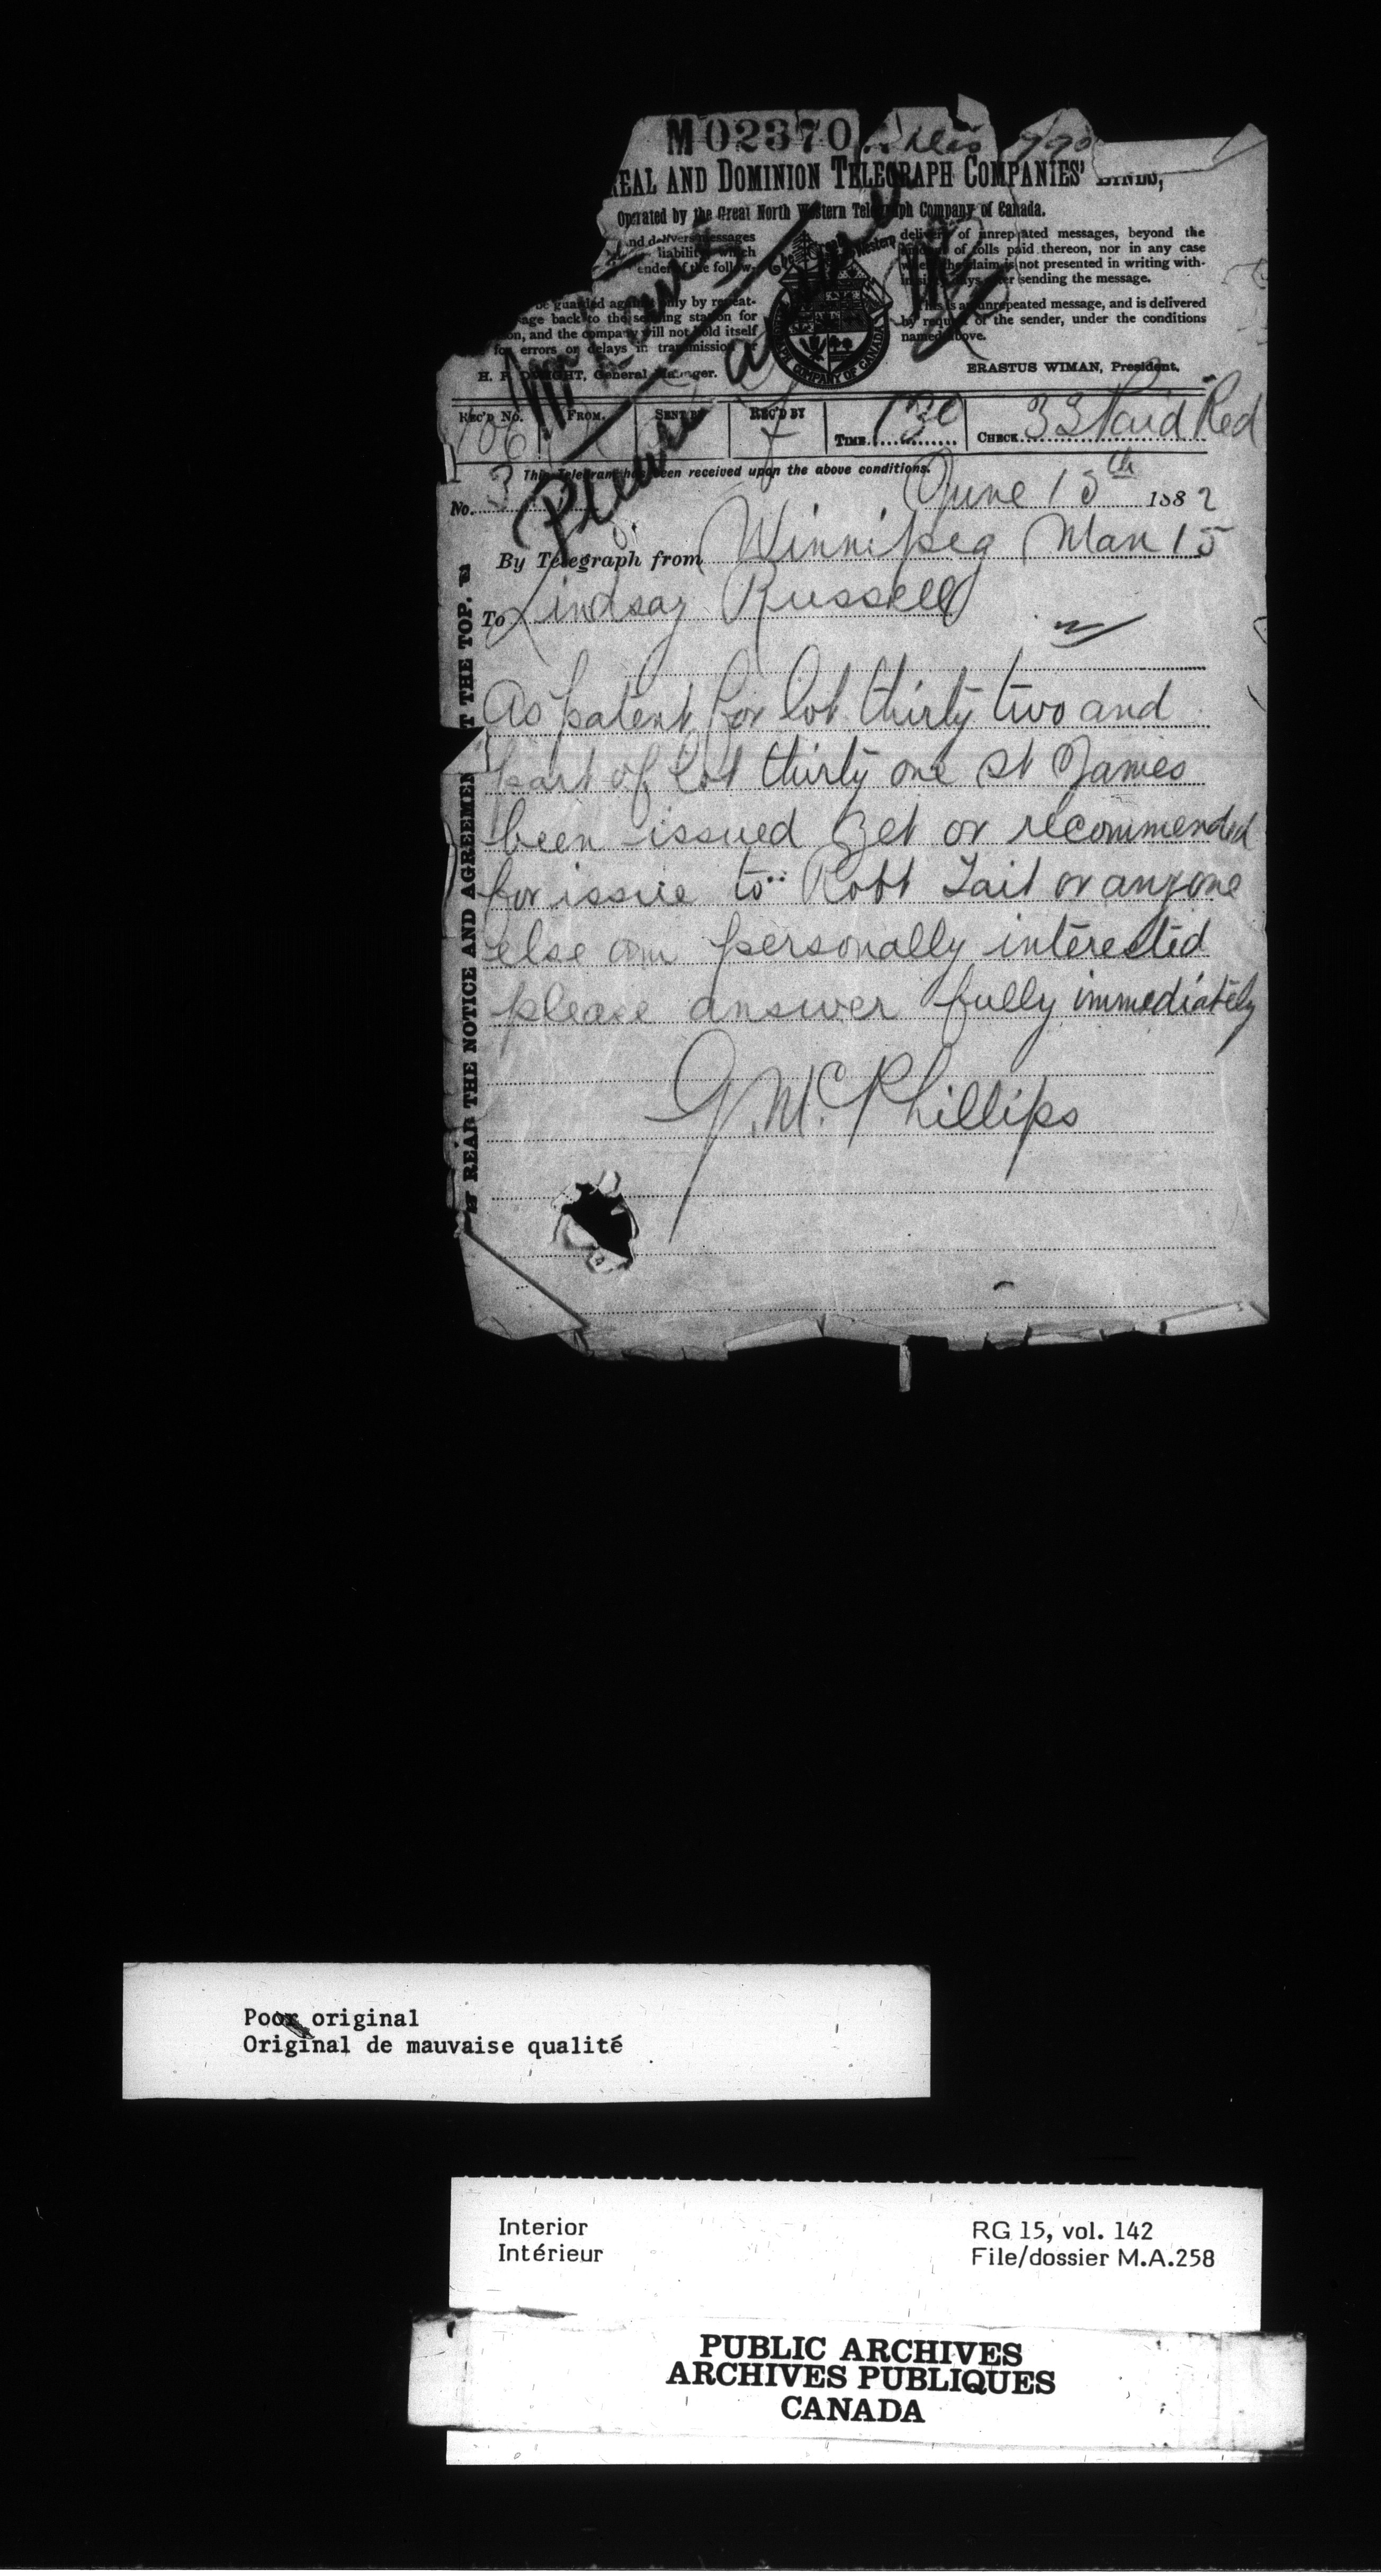 M02370
REAL AND DOMINION TELEGRAPH COMPANIES' LINES,
Operated by the Great North Western Telegraph Company of Canada.
and delivers messages
liability, which
ender of the follow-
be guarded against only by repeat-
age back to the sending station for
on, and the company will not hold itself
for errors or delays in transmission or
delivery of unrepeated messages, beyond the
of tolls paid thereon, nor in any case
where the claim is not presented in writing with-
days after sending the message.
This is an unrepeated message, and is delivered
by request of the sender, under the conditions
named above.
H. P. DWIGHT, General Manager.
ERASTUS WIMAN, President.
Please
REC'D No. FROM. SENT BY REC'D BY TIME 130 CHECK 33 Paid Red
106
This Telegram has been received upon the above conditions.
No. 3 June 15th 1882
By Telegraph from Winnipeg Man 15
To Lindsay Russell
As patent for lot thirty two and
part of lot thirty one St James
been issued yet or recommended
for issue to Robt Tait or anyone
else am personally interested
please answer fully immediately
G. McPhillips
READ THE NOTICE AND AGREEMENT AT THE TOP.
Poor original
Original de mauvaise qualité
Interior
Intérieur
RG 15, vol. 142
File/dossier M.A.258
PUBLIC ARCHIVES
ARCHIVES PUBLIQUES
CANADA